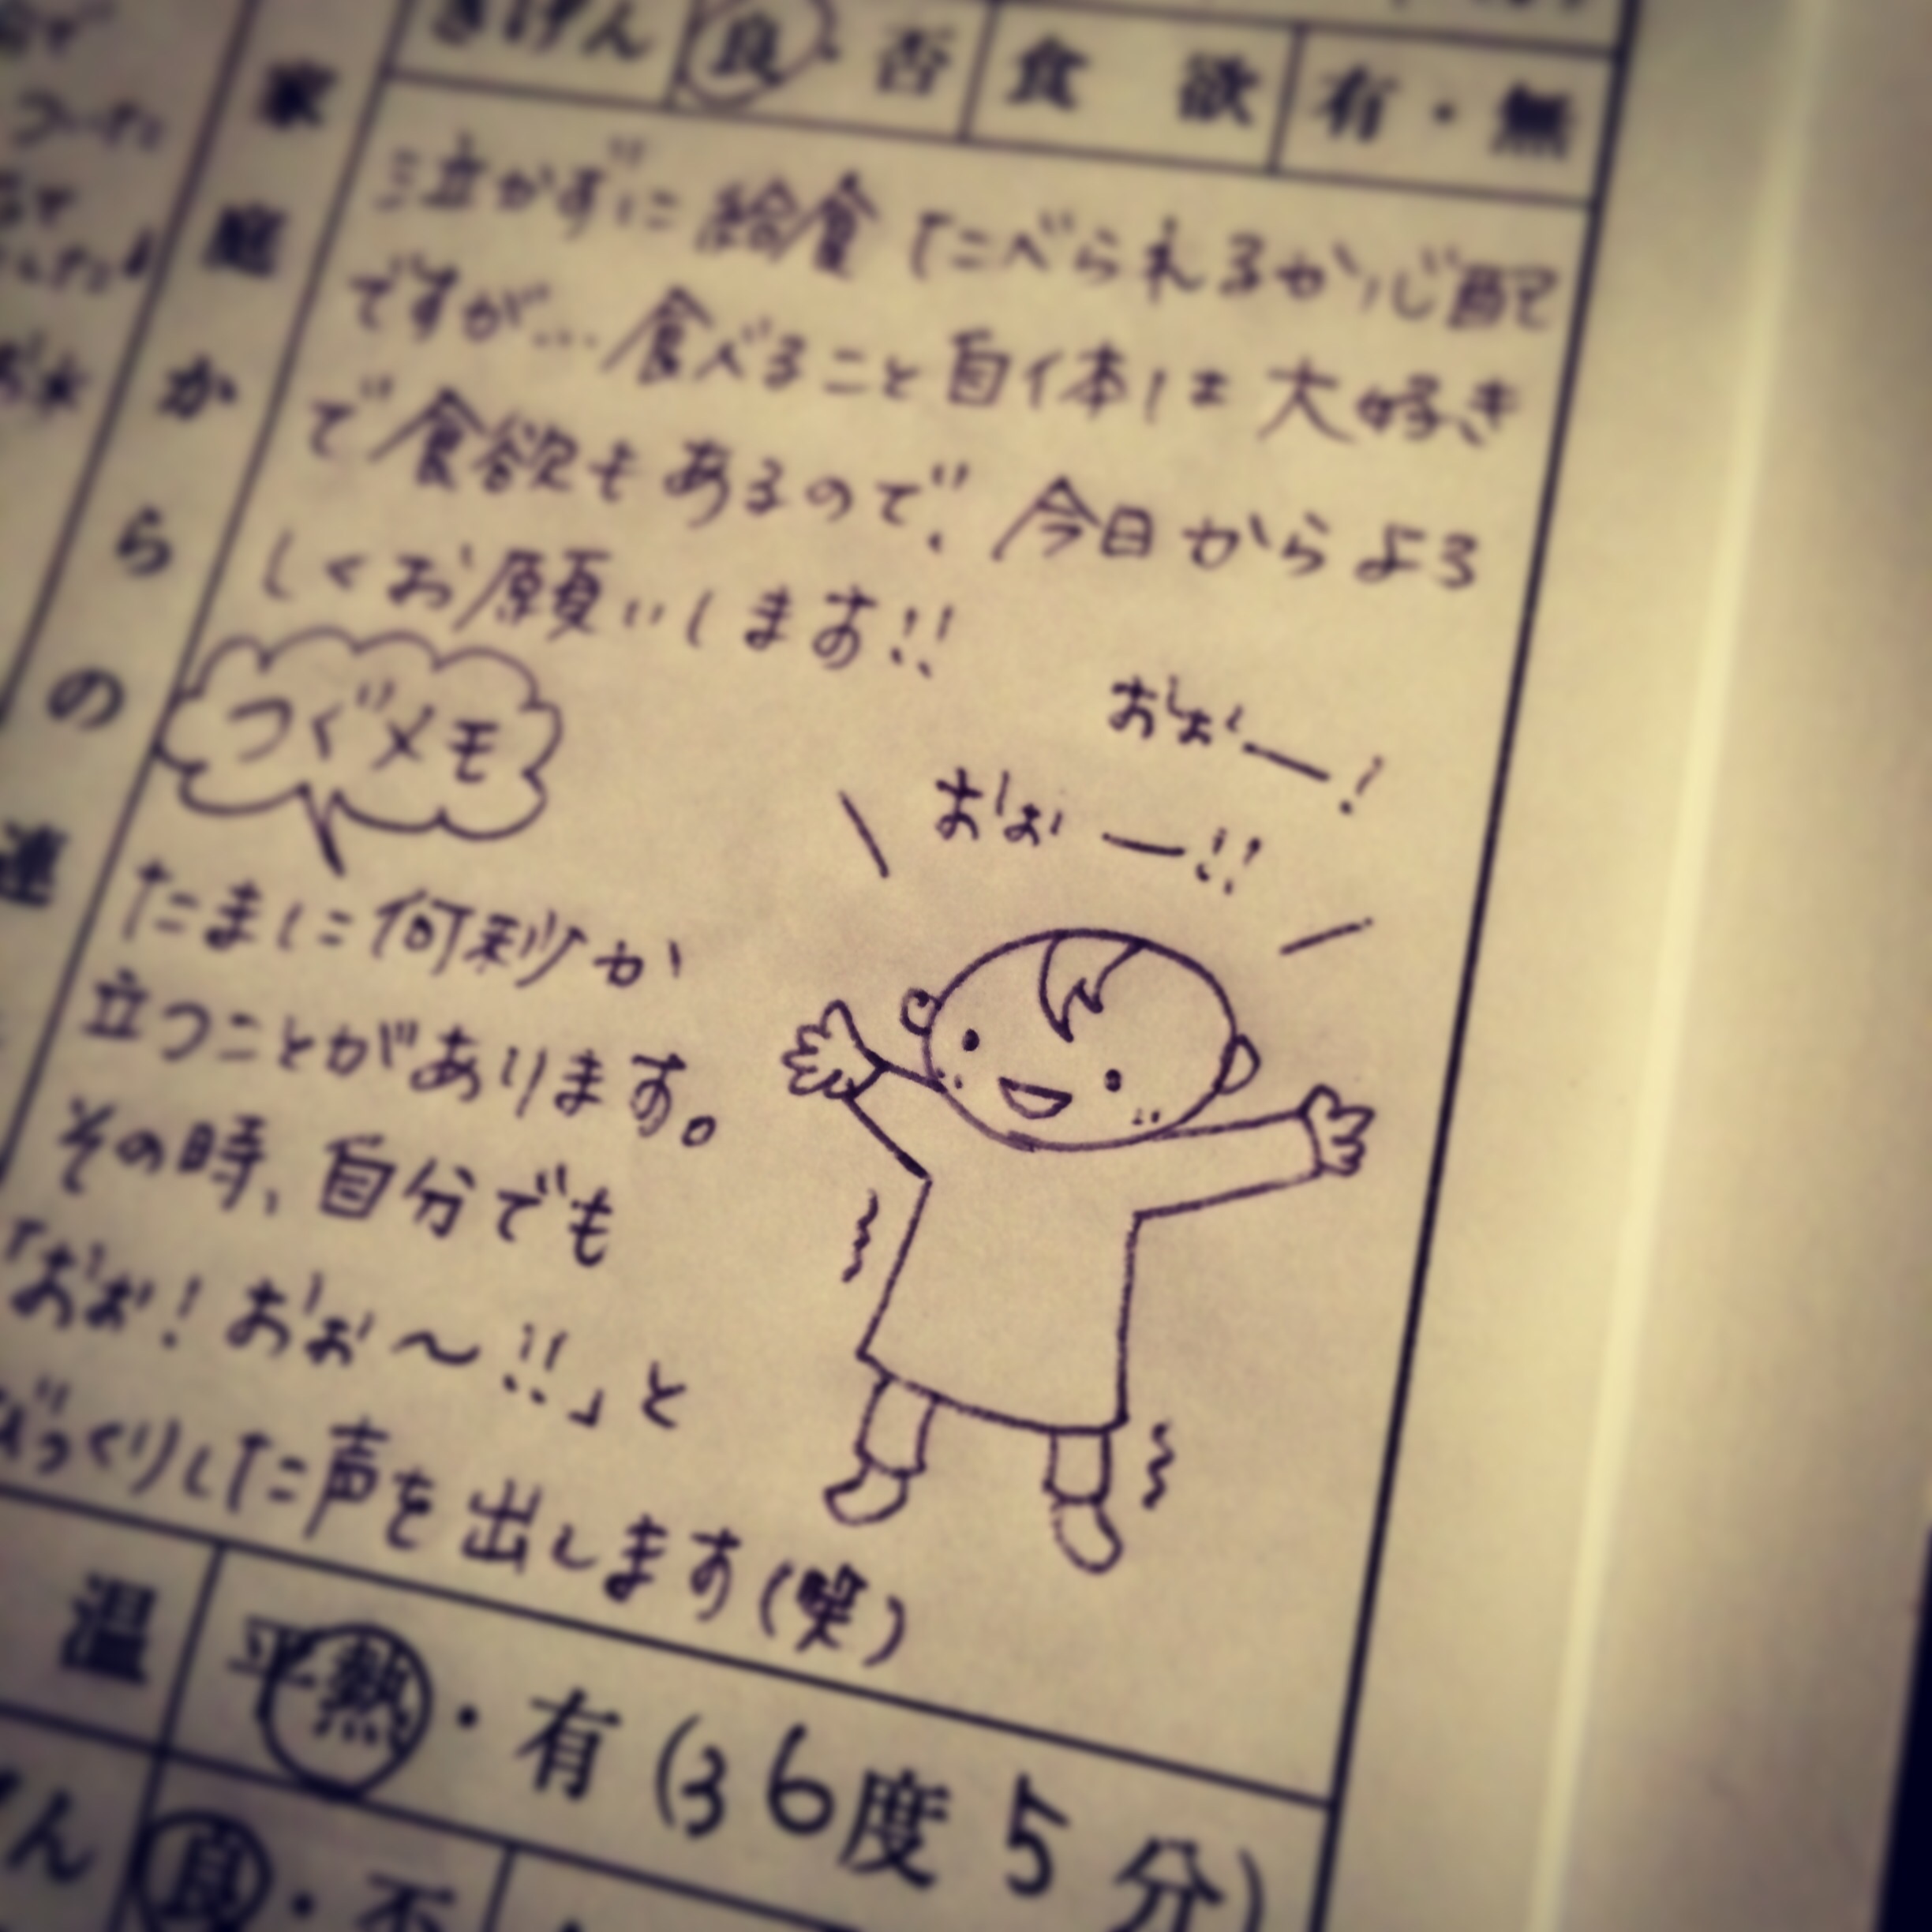 きげん 良・否 食欲 有・無
家庭からの連
泣かずに給食たべられるか心配
ですが…食べること自体は大好き
で食欲もあるので、今日からよろ
しくお願いします!!
つぐメモ
おぉー!
おぉー!!
たまに何秒か
立つことがあります。
その時、自分でも
「おぉ!おぉ〜!!」と
びっくりした声を出します(笑)
温 平熱・有(36度5分)
げん 良・否